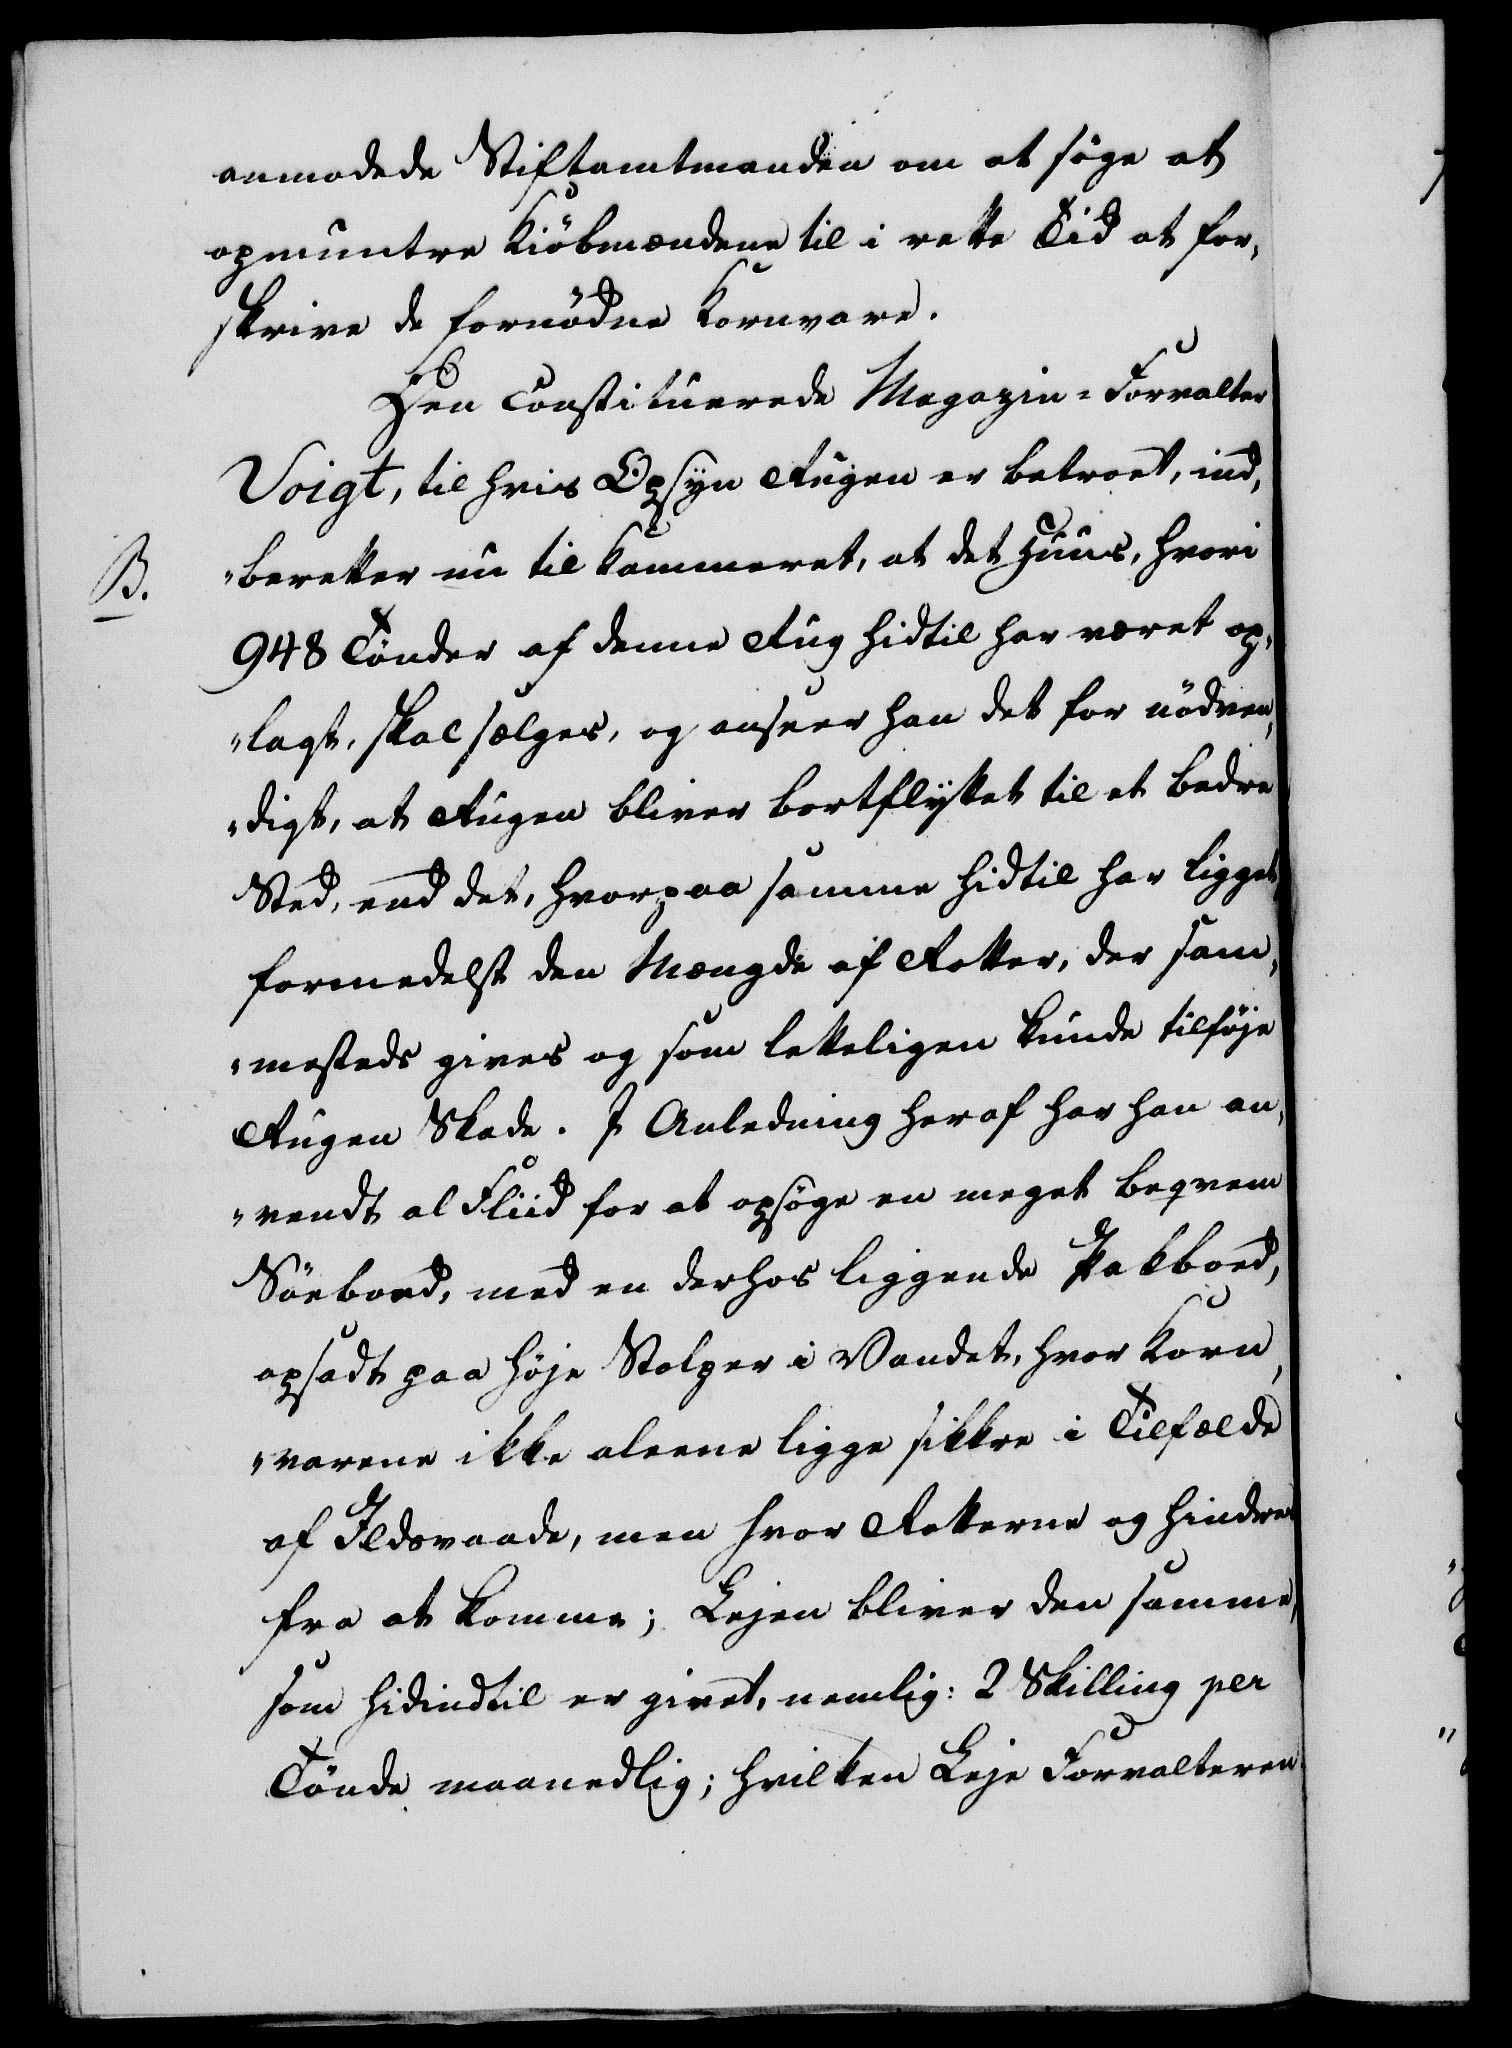 anmodede Stiftamtmanden om at søge at
opmuntre Kiöbmændene til i rette Tid at for„
skrive de fornödne Kornvare.
Den Constituerede Magazin-Forvalter
Voigt, til hvis Opsyn Rugen er betroet, ind„
B.
„beretter nu til Kammeret, at det Huus, hvori
948 Tönder af denne Rug hidtil har været op„
„lagt, skal sælges, og anseer han det for nödven„
„digt, at Rugen bliver bortflyttet til et bedre
Sted, end det, hvorpaa samme hidtil har ligget,
formedelst den Mængde af Rotter, der sam„
„mesteds gives og som letteligen kunde tilföje
Rugen Skade. I Anledning heraf har han an„
„vendt al Fliid for at opsöge en meget beqvem
Söeboed, med en derhos liggende Pakboed,
opsadt paa höje Stolper i Vandet, hvor Korn„
„varene ikke aleene ligge sikkre i Tilfælde
af Ildsvaade, men hvor Rotterne og hindres
fra at komme; Lejen bliver den samme,
som hidindtil er givet, nemlig: 2 Skilling per
Tönde maanedlig; hvilken Leje Forvalteren